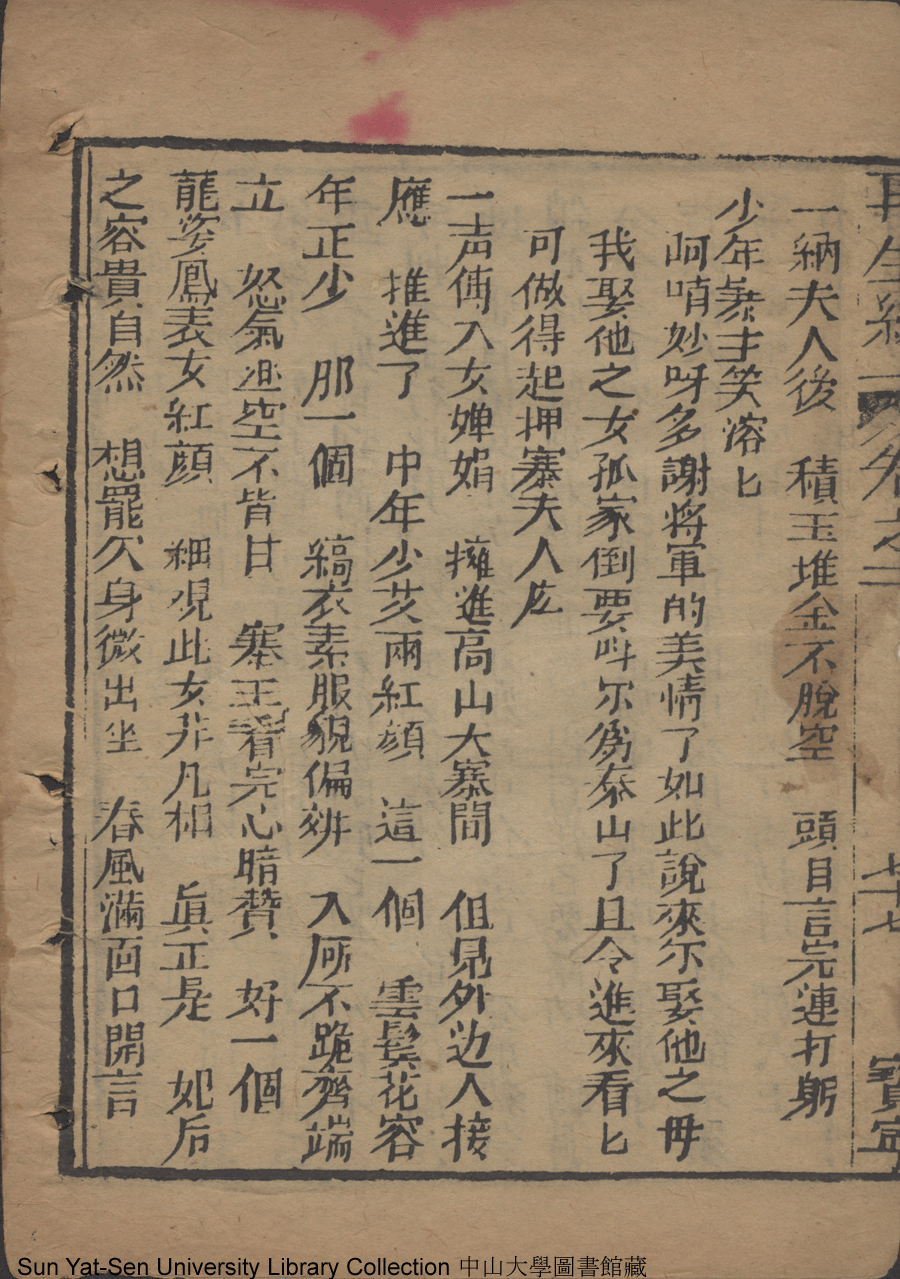 再生緣 卷之二 七十七 寶寧
一納夫人後 積玉堆金不脫空 頭目言完連打躬
少年寨主笑溶匕
呵唷妙呀多謝將軍的美情了如此說來尔娶他之母
我娶他之女孤家倒要呌尔為泰山了且令進來看匕
可做得起押寨夫人庅
一声傳入女嬋娟 擁進高山大寨間 但見外边人接
應 推進了 中年少艾兩紅顔 這一個 雲鬓花容
年正少 那一個 縞衣素服貌偏妍 入厛不跪齊端
立 怒氣冲空不肯甘 寨王看完心暗贊 好一個
龍姿鳳表女紅顔 細覌此女非凡相 眞正是 妃后
之容貴自然 想罷欠身微出坐 春風滿面口開言
Sun Yat-Sen University Library Collection 中山大學圖書館藏